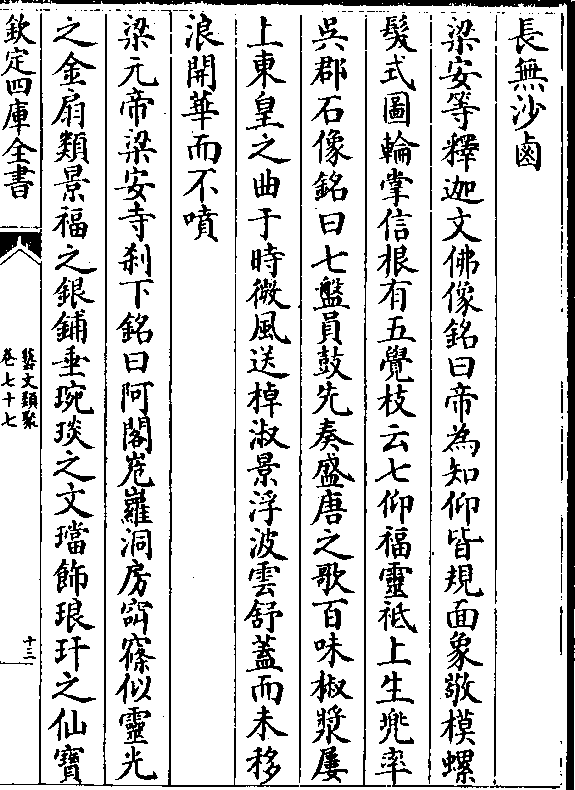 長無沙鹵
梁安等釋迦文佛像銘曰帝為知仰皆規面象敬模螺
髮式圖輪掌信根有五覺枝云七仰福靈祇上生兠率
吳郡石像銘曰七盤員鼓先奏盛唐之歌百味椒漿屢
上東皇之曲于時微風送棹淑景浮波雲舒蓋而未移
浪開華而不噴
梁元帝梁安寺刹下銘曰阿閣嵬㠥洞房窈窱似靈光
之金扇類景福之銀鋪垂琬琰之文璫飾琅玕之仙寶
欽定四庫全書
藝文類聚
卷七十七
十三